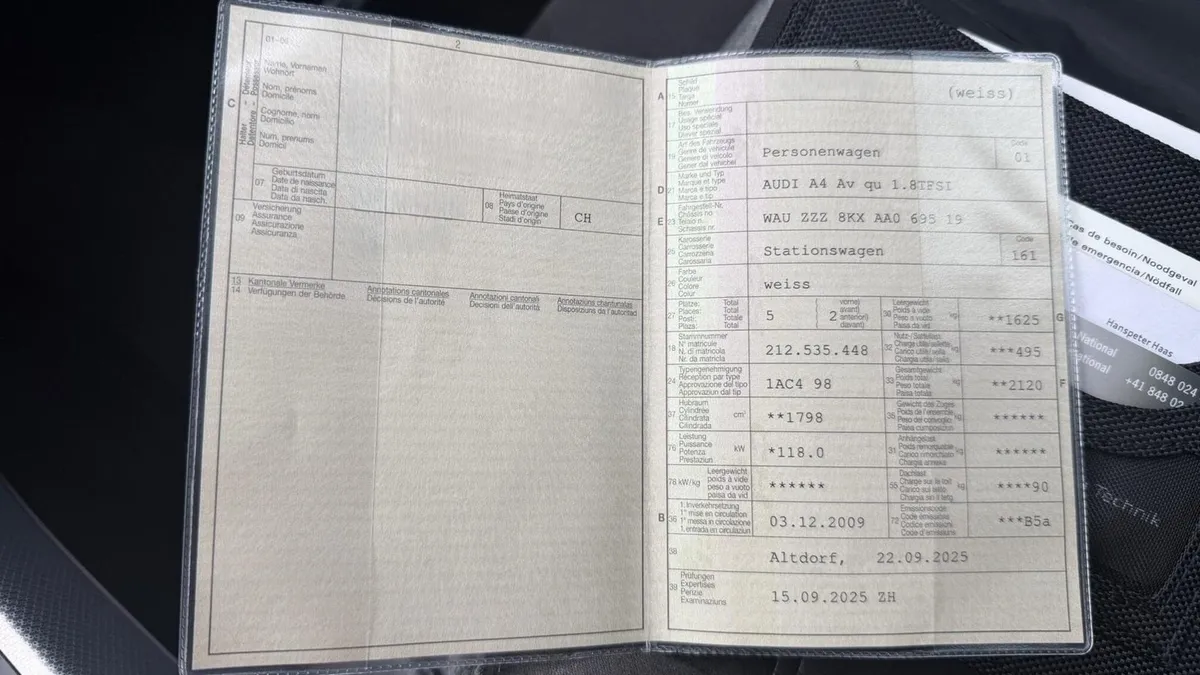 2
01-06
Name, Vornamen
Wohnort
Nom, prénoms
Domicile
Cognome, nomi
Domicilio
Num, prenums
Domicil
C
Halter
Detentore
Détenteur
Possessur
07
Geburtsdatum
Date de naissance
Data di nascita
Data da nasch.
08
Heimatstaat
Pays d'origine
Paese d'origine
Stadi d'origin
CH
09
Versicherung
Assurance
Assicurazione
Assicuranza
13 Kantonale Vermerke
14 Verfügungen der Behörde
Annotations cantonales
Décisions de l'autorité
Annotazioni cantonali
Decisioni dell'autorità
Annotaziuns chantunalas
Disposiziuns da l'autoritad
3
A 15
Schild
Plaque
Targa
Numer
(weiss)
17
Bes. Verwendung
Usage spécial
Uso speciale
Diever spezial
19
Art des Fahrzeugs
Genre de véhicule
Genere di veicolo
Gener dal vehichel
Personenwagen
Code
01
D 21
Marke und Typ
Marque et type
Marca e tipo
Marca e tip
AUDI A4 Av qu 1.8TFSI
E 23
Fahrgestell-Nr.
Châssis no
Telaio n.
Schassis nr.
WAU ZZZ 8KX AA0 695 19
25
Karosserie
Carrosserie
Carrozzeria
Carossaria
Stationswagen
Code
161
26
Farbe
Couleur
Colore
Colur
weiss
27
Plätze: Total
Places: Total
Posti: Totale
Plazs: Total
5
2
vorne)
avant)
anteriori)
davant)
30
Leergewicht
Poids à vide
Peso a vuoto
Paisa da vid
kg
**1625
G
18
Stammnummer
N° matricule
N. di matricola
Nr. da matricla
212.535.448
32
Nutz-/Sattellast
Charge utile/sellette
Carico utile/sella
Chargia utila/sella
kg
***495
24
Typengenehmigung
Réception par type
Approvazione del tipo
Approvaziun dal tip
1AC4 98
33
Gesamtgewicht
Poids total
Peso totale
Paisa totala
kg
**2120
F
37
Hubraum
Cylindrée
Cilindrata
Cilindrada
cm³
**1798
35
Gewicht des Zuges
Poids de l'ensemble
Peso del convoglio
Paisa cumposiziun
kg
******
76
Leistung
Puissance
Potenza
Prestaziun
kW
*118.0
31
Anhängelast
Poids remorquable
Carico rimorchiato
Chargia annexa
kg
******
78 kW/kg
Leergewicht
poids à vide
peso a vuoto
paisa da vid
******
55
Dachlast
Charge sur le toit
Carico sul tetto
Chargia sin il tetg
kg
****90
B 36
1. Inverkehrsetzung
1re mise en circulation
1a messa in circolazione
1. entrada en circulaziun
03.12.2009
72
Emissionscode
Code émissions
Codice emissioni
Code d'emissiuns
***B5a
38
Altdorf, 22.09.2025
39
Prüfungen
Expertises
Perizie
Examinaziuns
15.09.2025 ZH
Cas de besoin/Noodgeval
emergencia/Nödfall
Hanspeter Haas
National 0848 024
+41 848 02
Technik